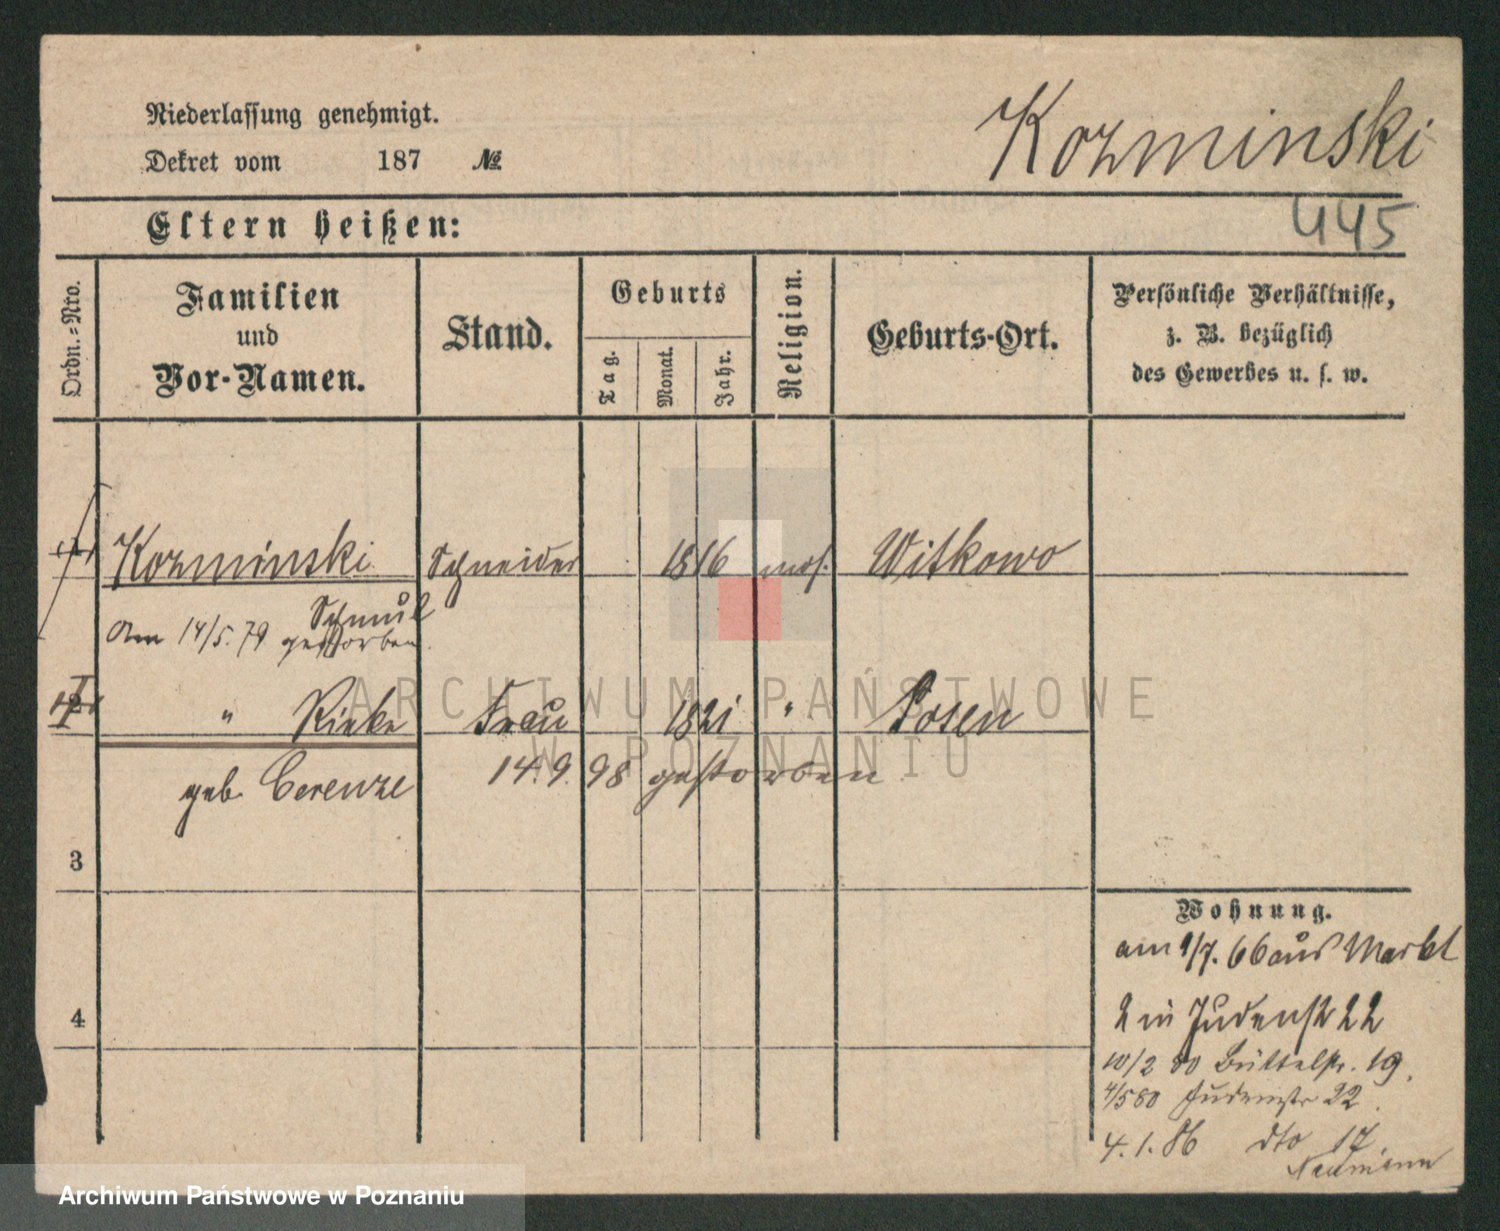 Niederlassung genehmigt.
Dekret vom 187 №
Kozminski
Eltern heißen:
445
Ordn.=Nro.
Familien
und
Vor-Namen.
Stand.
Geburts
Tag.
Monat.
Jahr.
Religion.
Geburts-Ort.
Persönliche Verhältnisse,
z. B. bezüglich
des Gewerbes u. s. w.
Kozminski Schneider 1816 mos. Witkowo
Schmul
Am 14/5. 79 gestorben.
" Rieke Frau 1821 " Posen
geb. 14. 9. 98 gestorben
3
4
Wohnung.
am 1/7. 66 aus Markt
2 in Judenstr 22
10/2 80 Büttelstr. 19.
4/5 80 Judenstr 22.
4. 1. 86 dto 17.
Neumann
ARCHIWUM PAŃSTWOWE
W POZNANIU
Archiwum Państwowe w Poznaniu